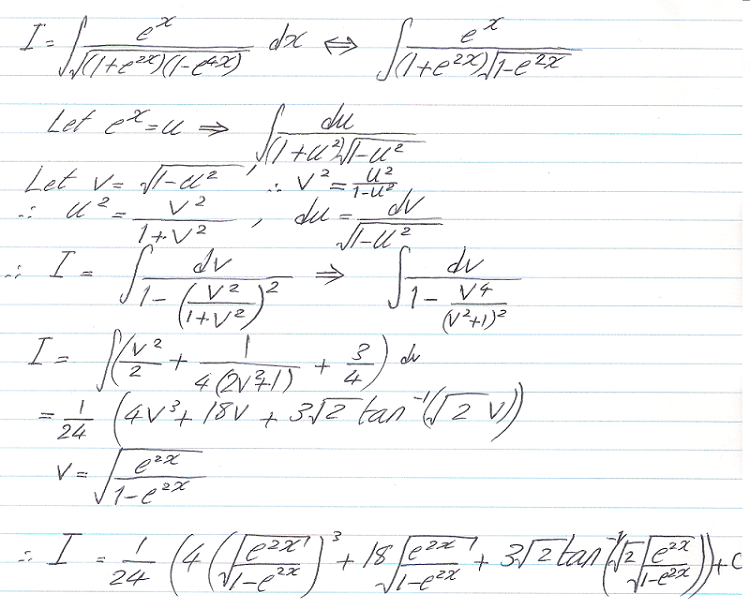 I = ∫ e^x / √((1+e^2x)(1-e^4x)) dx ⇔ ∫ e^x / ((1+e^2x)√(1-e^2x))
Let e^x = u ⇒ ∫ du / ((1+u²)√(1-u²))
Let v = √(1-u²), ∴ v² = u²/(1-u²)
∴ u² = v²/(1+v²), du = dv/√(1-u²)
∴ I = ∫ dv / (1-(v²/(1+v²))²) ⇒ ∫ dv / (1 - v⁴/(v²+1)²)
I = ∫(v²/2 + 1/(4(2v²+1)) + 3/4) dv
= 1/24 (4v³ + 18v + 3√2 tan⁻¹(√2 v))
v = √(e^2x/(1-e^2x))
∴ I = 1/24 (4(√(e^2x/(1-e^2x)))³ + 18√(e^2x/(1-e^2x)) + 3√2 tan⁻¹(√2 √(e^2x/(1-e^2x)))) + C